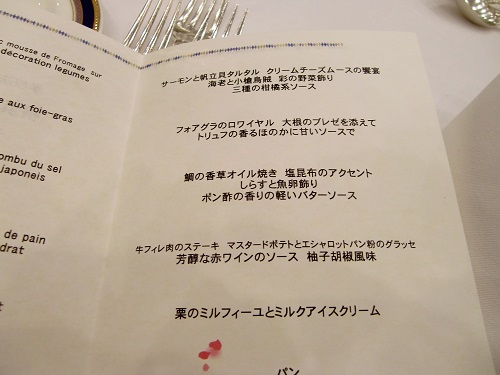 c mousse de Fromage sur
décoration legumes
e aux foie-gras
ombu du sel
japoneis
de pain
drat
サーモンと帆立貝タルタル クリームチーズムースの饗宴
海老と小槍烏賊 彩の野菜飾り
三種の柑橘系ソース
フォアグラのロワイヤル 大根のブレゼを添えて
トリュフの香るほのかに甘いソースで
鯛の香草オイル焼き 塩昆布のアクセント
しらすと魚卵飾り
ポン酢の香りの軽いバターソース
牛フィレ肉のステーキ マスタードポテトとエシャロットパン粉のグラッセ
芳醇な赤ワインのソース 柚子胡椒風味
栗のミルフィーユとミルクアイスクリーム
パン